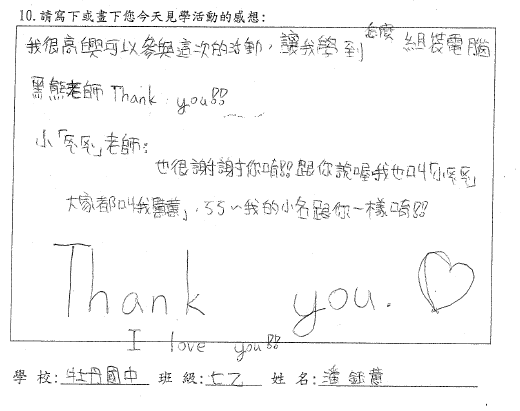 10.請寫下或畫下您今天見學活動的感想:
我很高興可以參與這次的活動,讓我學到怎麼組裝電腦
黑熊老師 Thank you!!
小「ㄎㄎ」老師:
也很謝謝你唷!!跟你說喔我也叫「小ㄎㄎ」
大家都叫我蕙蕙」,ㄎㄎ~我的小名跟你一樣唷!!
Thank you. ♡
I love you!!
學校:牡丹國中 班級:七乙 姓名:潘鈺蕙